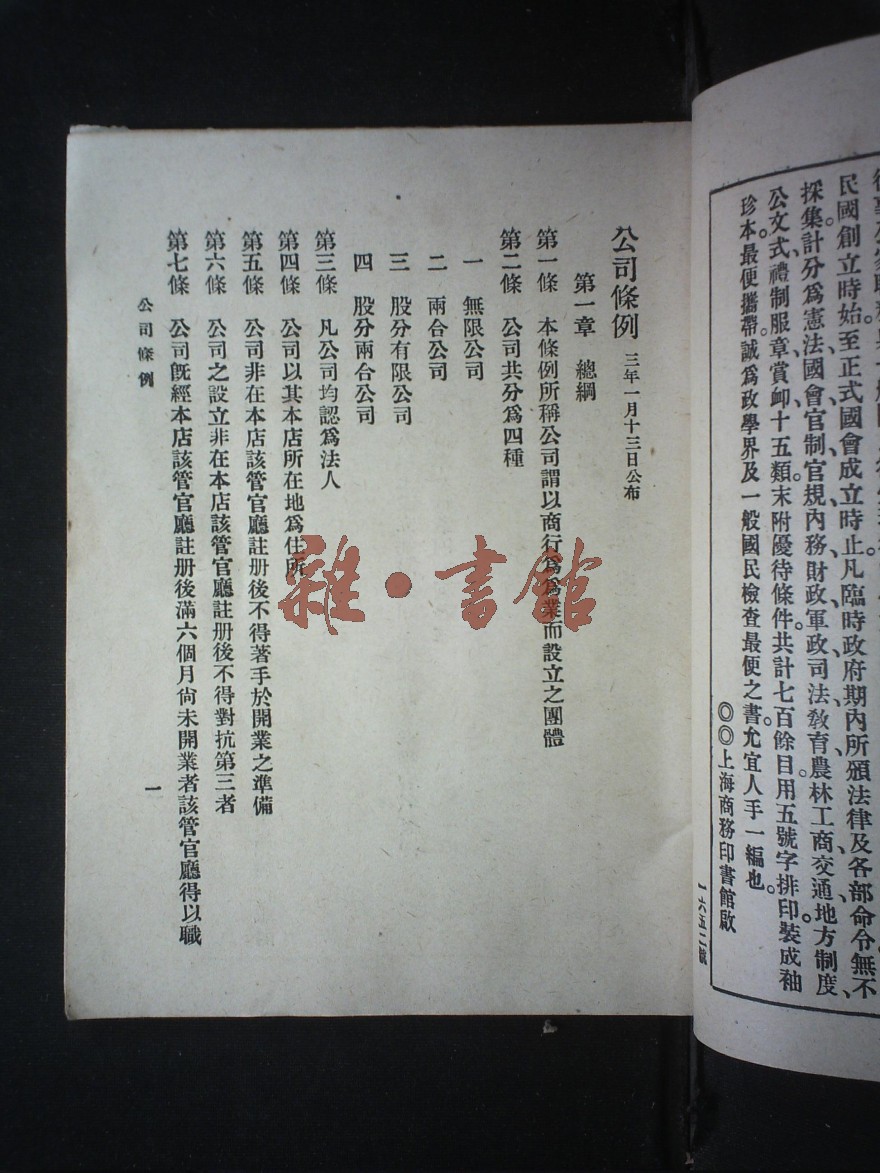 民國創立時始至正式國會成立時止。凡臨時政府期內所頒法律及各部命令無不
採集計分爲憲法、國會、官制、官規、內務、財政、軍政、司法、敎育、農林、工商、交通、地方制度、
公文式、禮制服章、賞卹十五類。末附優待條件。共計七百餘目。用五號字排印。裝成袖
珍本。最便攜帶。誠爲政學界及一般國民檢查最便之書。允宜人手一編也。
◎◎上海商務印書館啟
一六五二號
公司條例 三年一月十三日公布
第一章 總綱
第一條 本條例所稱公司謂以商行爲爲業而設立之團體
第二條 公司共分爲四種
一 無限公司
二 兩合公司
三 股分有限公司
四 股分兩合公司
第三條 凡公司均認爲法人
第四條 公司以其本店所在地爲住所
第五條 公司非在本店該管官廳註册後不得著手於開業之準備
第六條 公司之設立非在本店該管官廳註册後不得對抗第三者
第七條 公司旣經本店該管官廳註册後滿六個月尙未開業者該管官廳得以職
公司條例
一
雜·書館